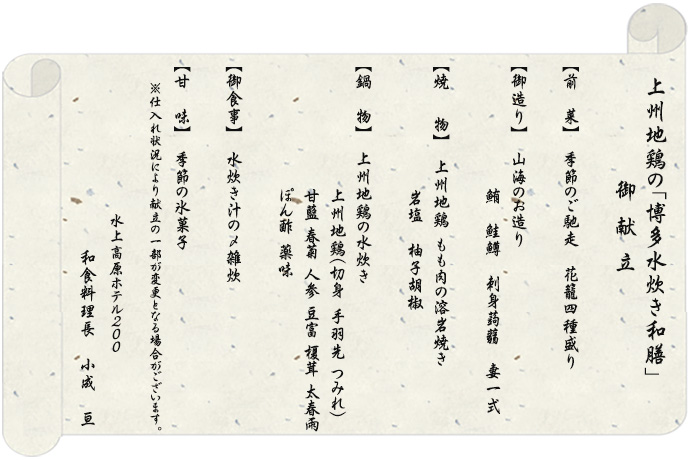 上州地鶏の「博多水炊き和膳」
御献立
【前 菜】 季節のご馳走 花籠四種盛り
【御造り】 山海のお造り
鮪 鮭鱒 刺身蒟蒻 妻一式
【焼 物】 上州地鶏 もも肉の溶岩焼き
岩塩 柚子胡椒
【鍋 物】 上州地鶏の水炊き
上州地鶏(切身 手羽先 つみれ)
甘藍 春菊 人参 豆富 榎茸 太春雨
ぽん酢 薬味
【御食事】 水炊き汁の〆雑炊
【甘 味】 季節の氷菓子
※仕入れ状況により献立の一部が変更となる場合がございます。
水上高原ホテル200
和食料理長 小成 亘